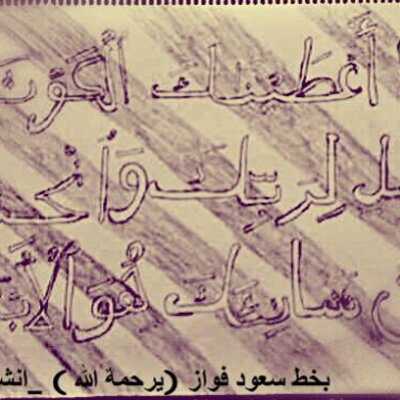 أَعْطَيْنَكَ الْكَوْثَ
لِ لِرَبِّكَ وَانْحَ
شَانِئَكَ هُوَ الْأَبْتَ
بخط سعود فواز (يرحمة الله ) _انش